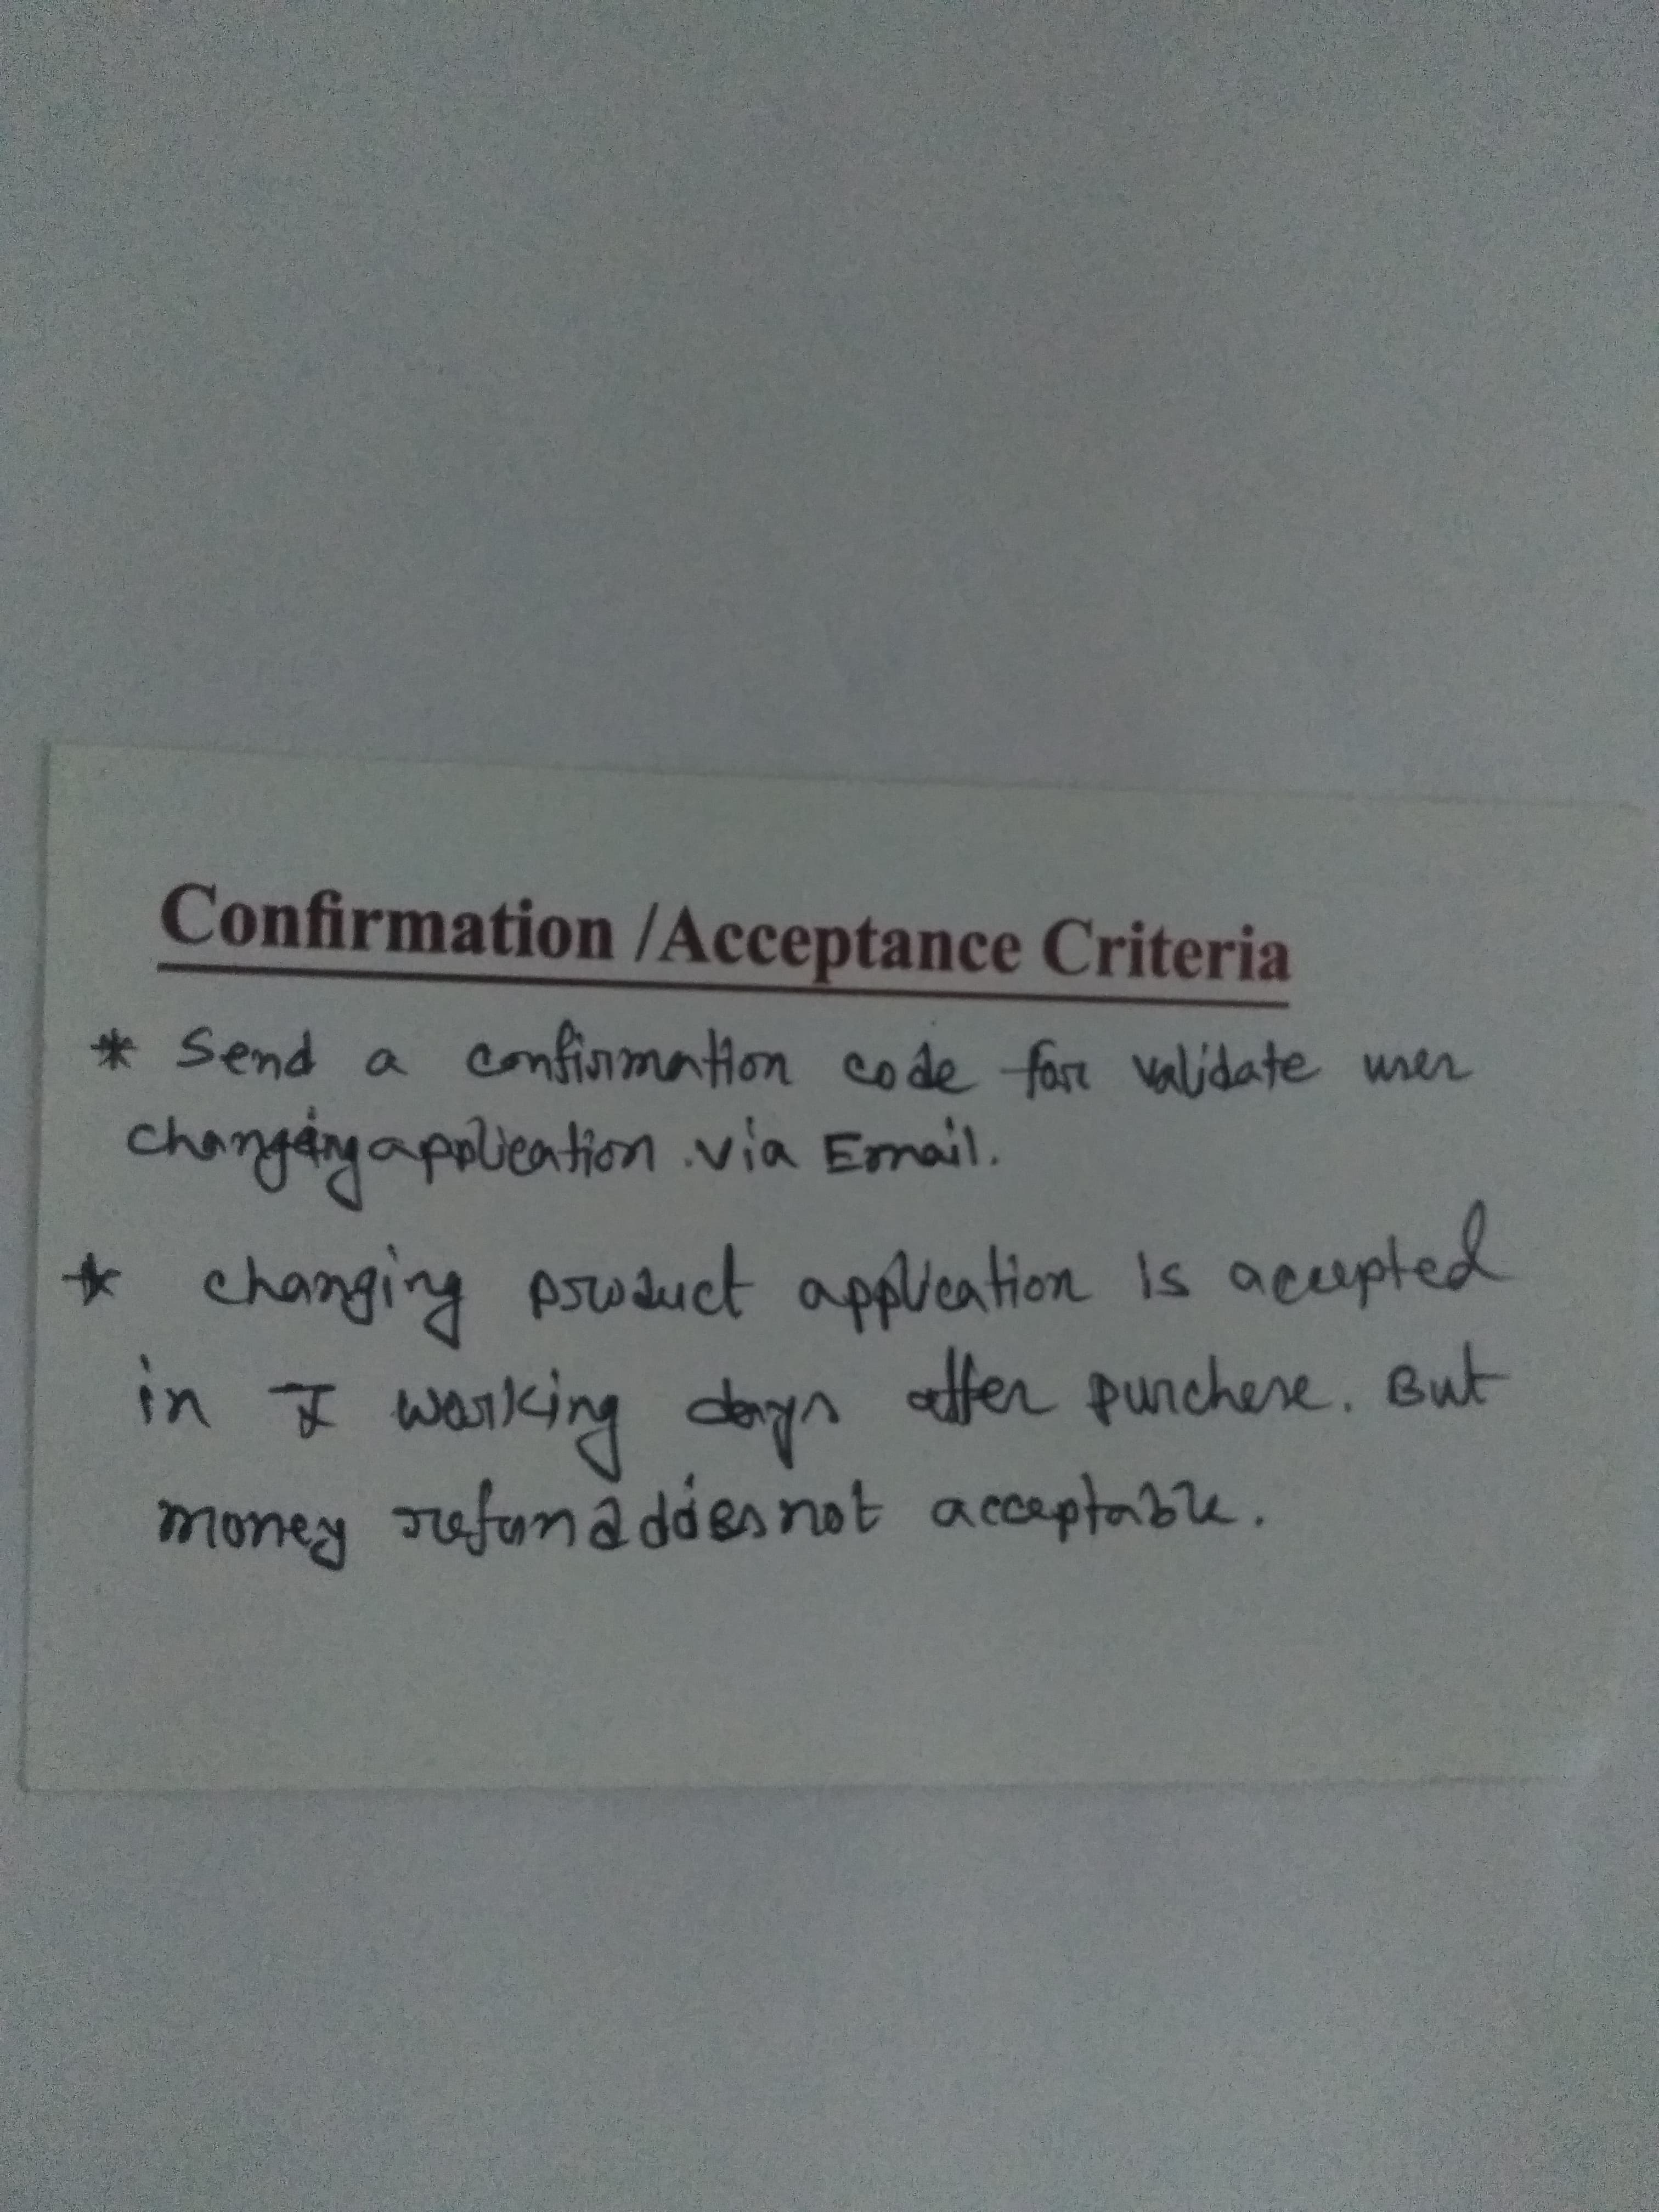 Confirmation /Acceptance Criteria
* Send a confirmation code for validate user
changing application via Email.
* changing product application is accepted
in working days after purchese. But
money refund does not acceptable.